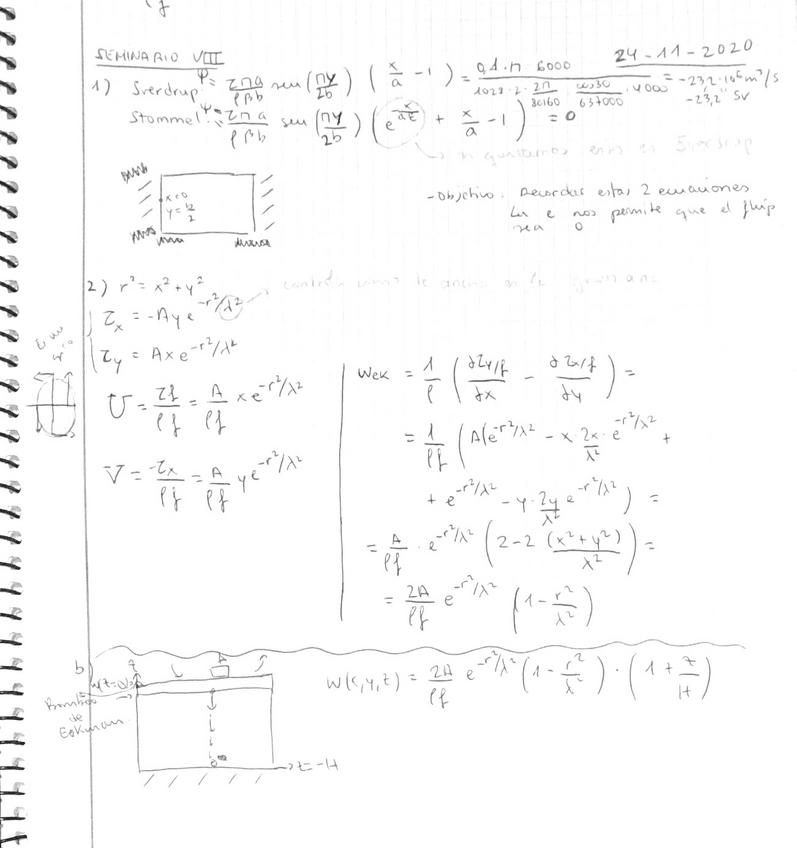 SEMINARIO VIII
24-11-2020
1) Sverdrup: Ψ = τπa/ρβb sen (πy/2b) (x/a - 1) = 0,1·π 6000 / 1028·2·2π/86160 cos30/637000 ·4000 = -23,2·10⁶ m³/s
-23,2 Sv
Stommel: Ψ = τπa/ρβb sen (πy/2b) (e^(-x/aε) + x/a - 1) = 0
si quitamos esto es Sverdrup
x=0
y=b/2
- Objectivo: Recordar estas 2 ecuaciones
La ε nos permite que el flujo
sea 0
2) r² = x² + y²
τx = -Ay e^(-r²/λ²)
τy = Ax e^(-r²/λ²)
U = τy/ρf = A/ρf x e^(-r²/λ²)
V = -τx/ρf = A/ρf y e^(-r²/λ²)
wEK = 1/ρ (∂τy/f/∂x - ∂τx/f/∂y) =
= 1/ρf (A(e^(-r²/λ²) - x·2x/λ²·e^(-r²/λ²) +
+ e^(-r²/λ²) - y·2y/λ² e^(-r²/λ²)) =
= A/ρf · e^(-r²/λ²) (2-2 (x²+y²)/λ²) =
= 2A/ρf e^(-r²/λ²) (1 - r²/λ²)
b)
z
w(z=0)
Bombeo
de
Eckman
z=-H
w(x,y,z) = 2A/ρf e^(-r²/λ²) (1 - r²/λ²) · (1 + z/H)